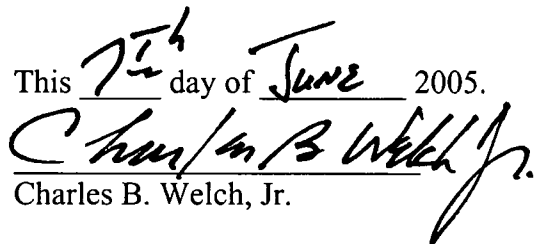 This 7th day of June 2005.
Charles B Welch Jr.
Charles B. Welch, Jr.